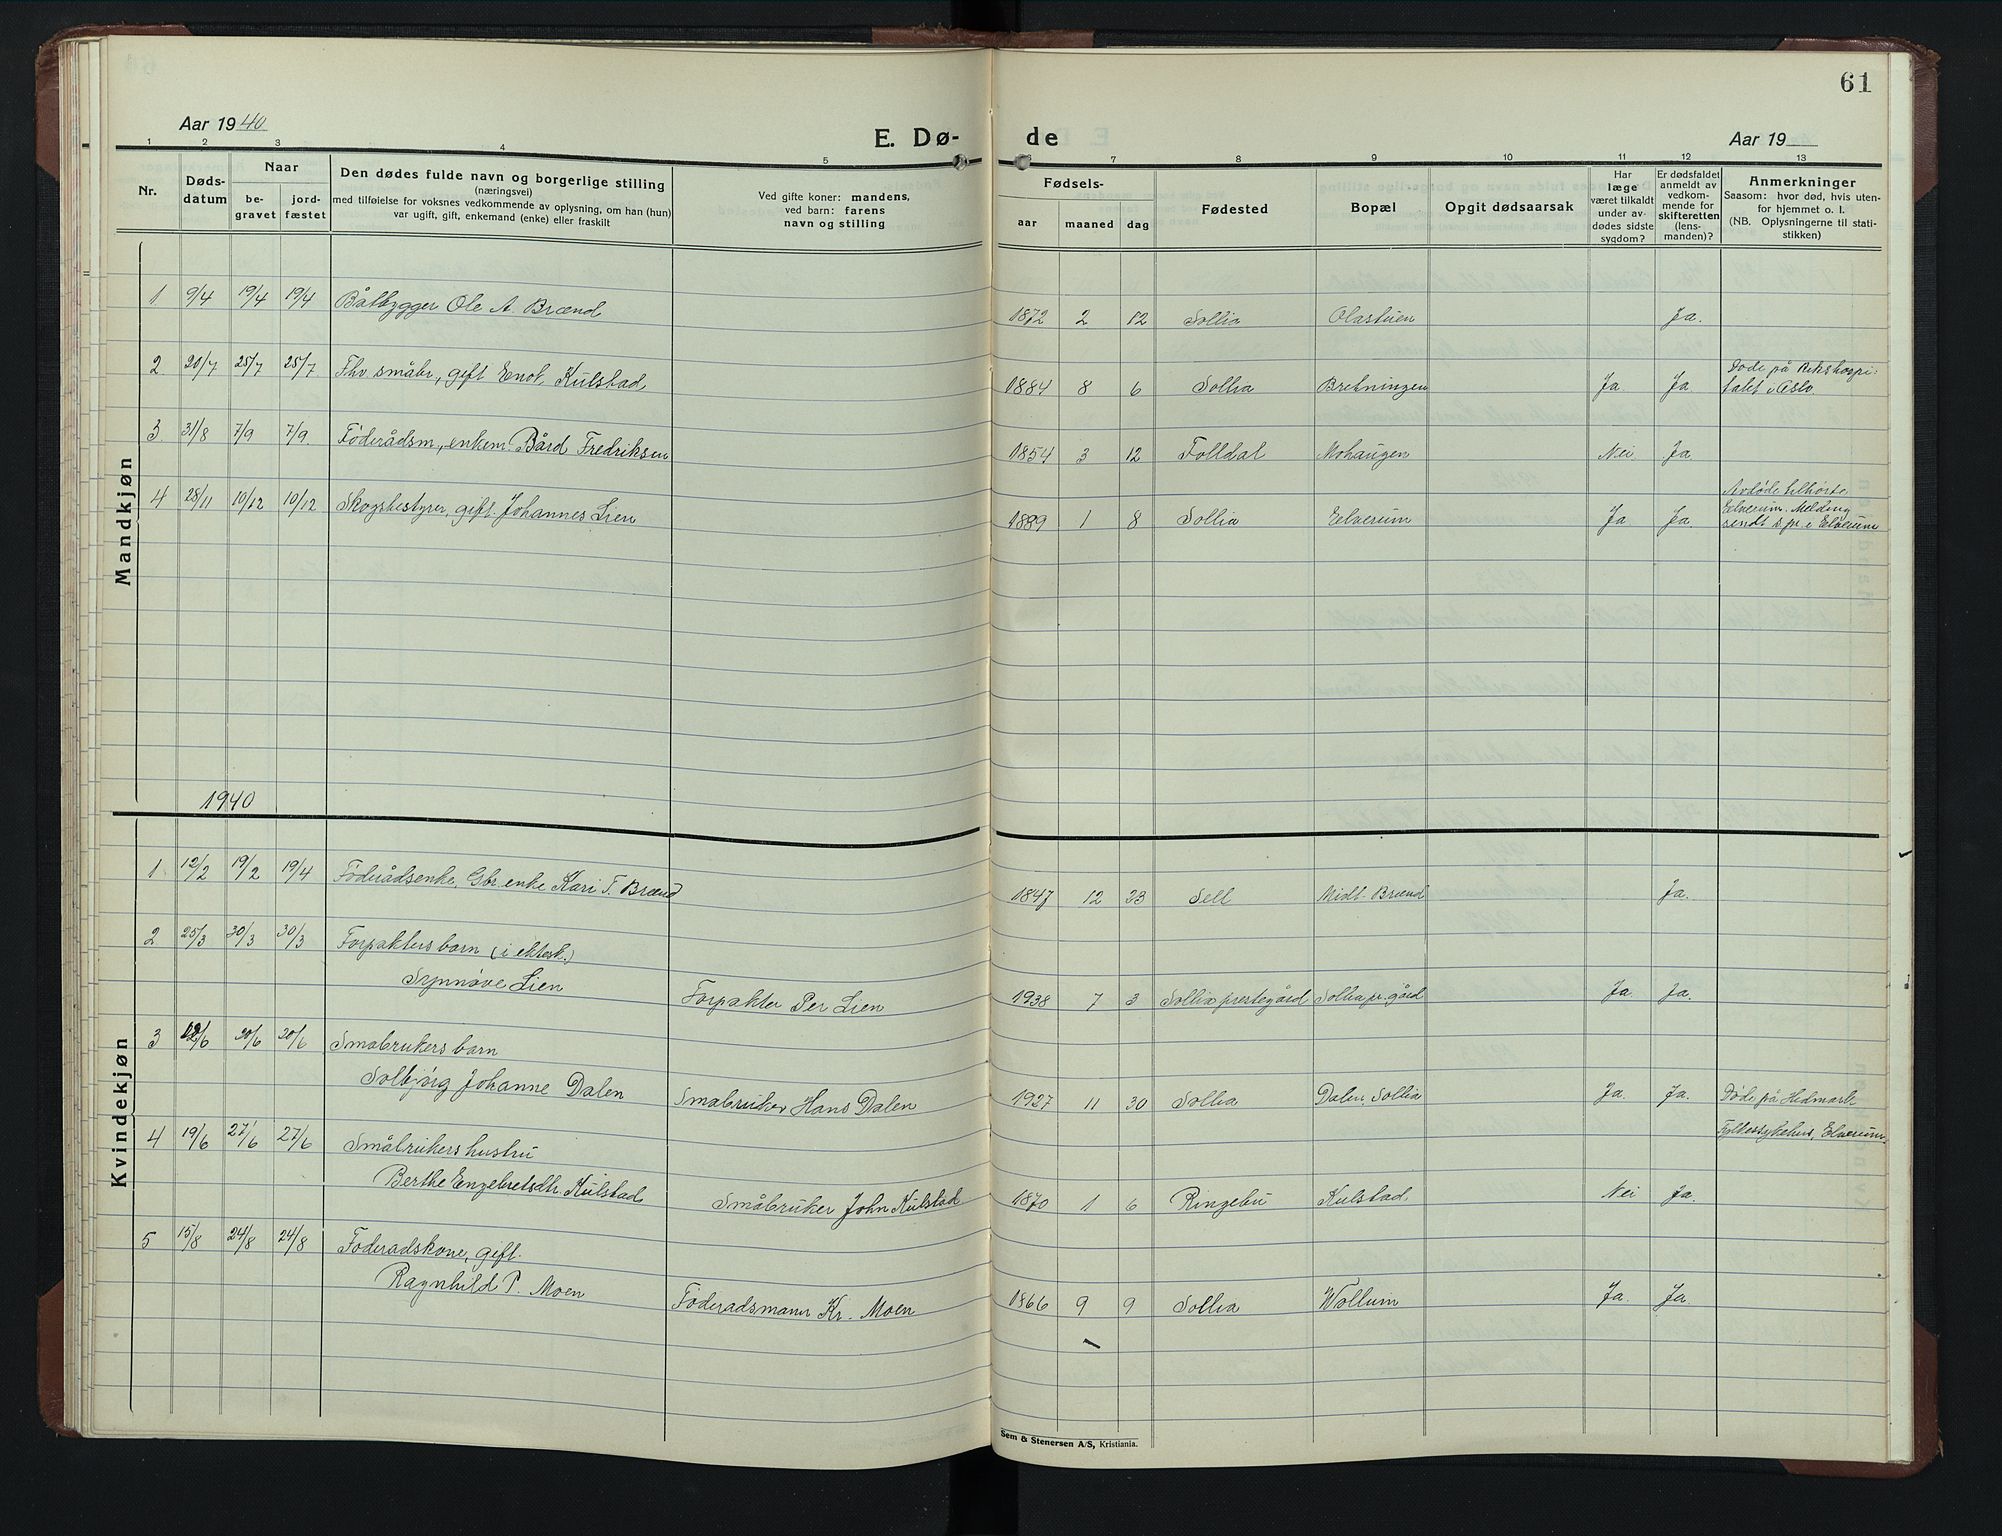 61
Aar 1940
E. Dø-
de
Aar 19
1 2 3 4 5 6 7 8 9 10 11 12 13
Nr.
Døds-
datum
Naar
be-
gravet
jord-
fæstet
Den dødes fulde navn og borgerlige stilling
(næringsvei)
med tilføielse for voksnes vedkommende av oplysning, om han (hun)
var ugift, gift, enkemand (enke) eller fraskilt
Ved gifte koner: mandens,
ved barn: farens
navn og stilling
Fødsels-
aar maaned dag
Fødested
Bopæl
Opgit dødsaarsak
Har
læge
været tilkaldt
under av-
dødes sidste
sygdom?
Er dødsfaldet
anmeldt av
vedkom-
mende for
skifteretten
(lens-
manden)?
Anmerkninger
Saasom: hvor død, hvis uten-
for hjemmet o. l.
(NB. Oplysningerne til stati-
stikken)
Mandkjøn
1 9/4 19/4 19/4 Båtbygger Ole A. Brænd 1872 2 12 Sollia Olastuen Ja.
2 20/7 25/7 25/7 Fhv. småbr., gift Enok Kulstad 1884 8 6 Sollia Bretningen Ja Ja Døde på Rikshospi-
talet i Oslo.
3 31/8 7/9 7/9. Føderådsm., enkem. Bård Fredriksen 1854 3 12 Folldal Mohaugen Nei Ja
4 28/11 10/12 10/12 Skogbestyrer, gift. Johannes Lien 1889 1 8 Sollia Elverum Ja Ja Avdøde tilhørte
Elverum. Melding
sendt s.pr. i Elverum
1940
Kvindekjøn
1 12/2 19/2 19/4 Føderådsenke, Gbr. enke Kari T. Brænd 1847 12 23 Sell Midt-Brænd Ja.
2 25/3 30/3 30/3 Forpakters barn (i ektesk.)
Synnøve Lien Forpakter Per Lien 1938 7 3 Sollia prestegård Sollia pr.gård Ja Ja.
3 12/6 20/6 20/6 Småbrukers barn
Solbjørg Johanne Dalen Småbruker Hans Dalen 1927 11 30 Sollia Dalen, Sollia Ja. Ja. Døde på Hedmark
Fylkessykehus, Elverum.
4 19/6 27/6 27/6 Småbrukers hustru
Berthe Engebretsdtr. Kulstad Småbruker John Kulstad 1870 1 6 Ringebu Kulstad Nei Ja.
5 15/8 24/8 24/8 Føderadskone, gift.
Ragnhild P. Moen Føderadsmann Kr. Moen 1866 9 9 Sollia Wollum Ja. Ja.
Sem & Stenersen A/S, Kristiania.